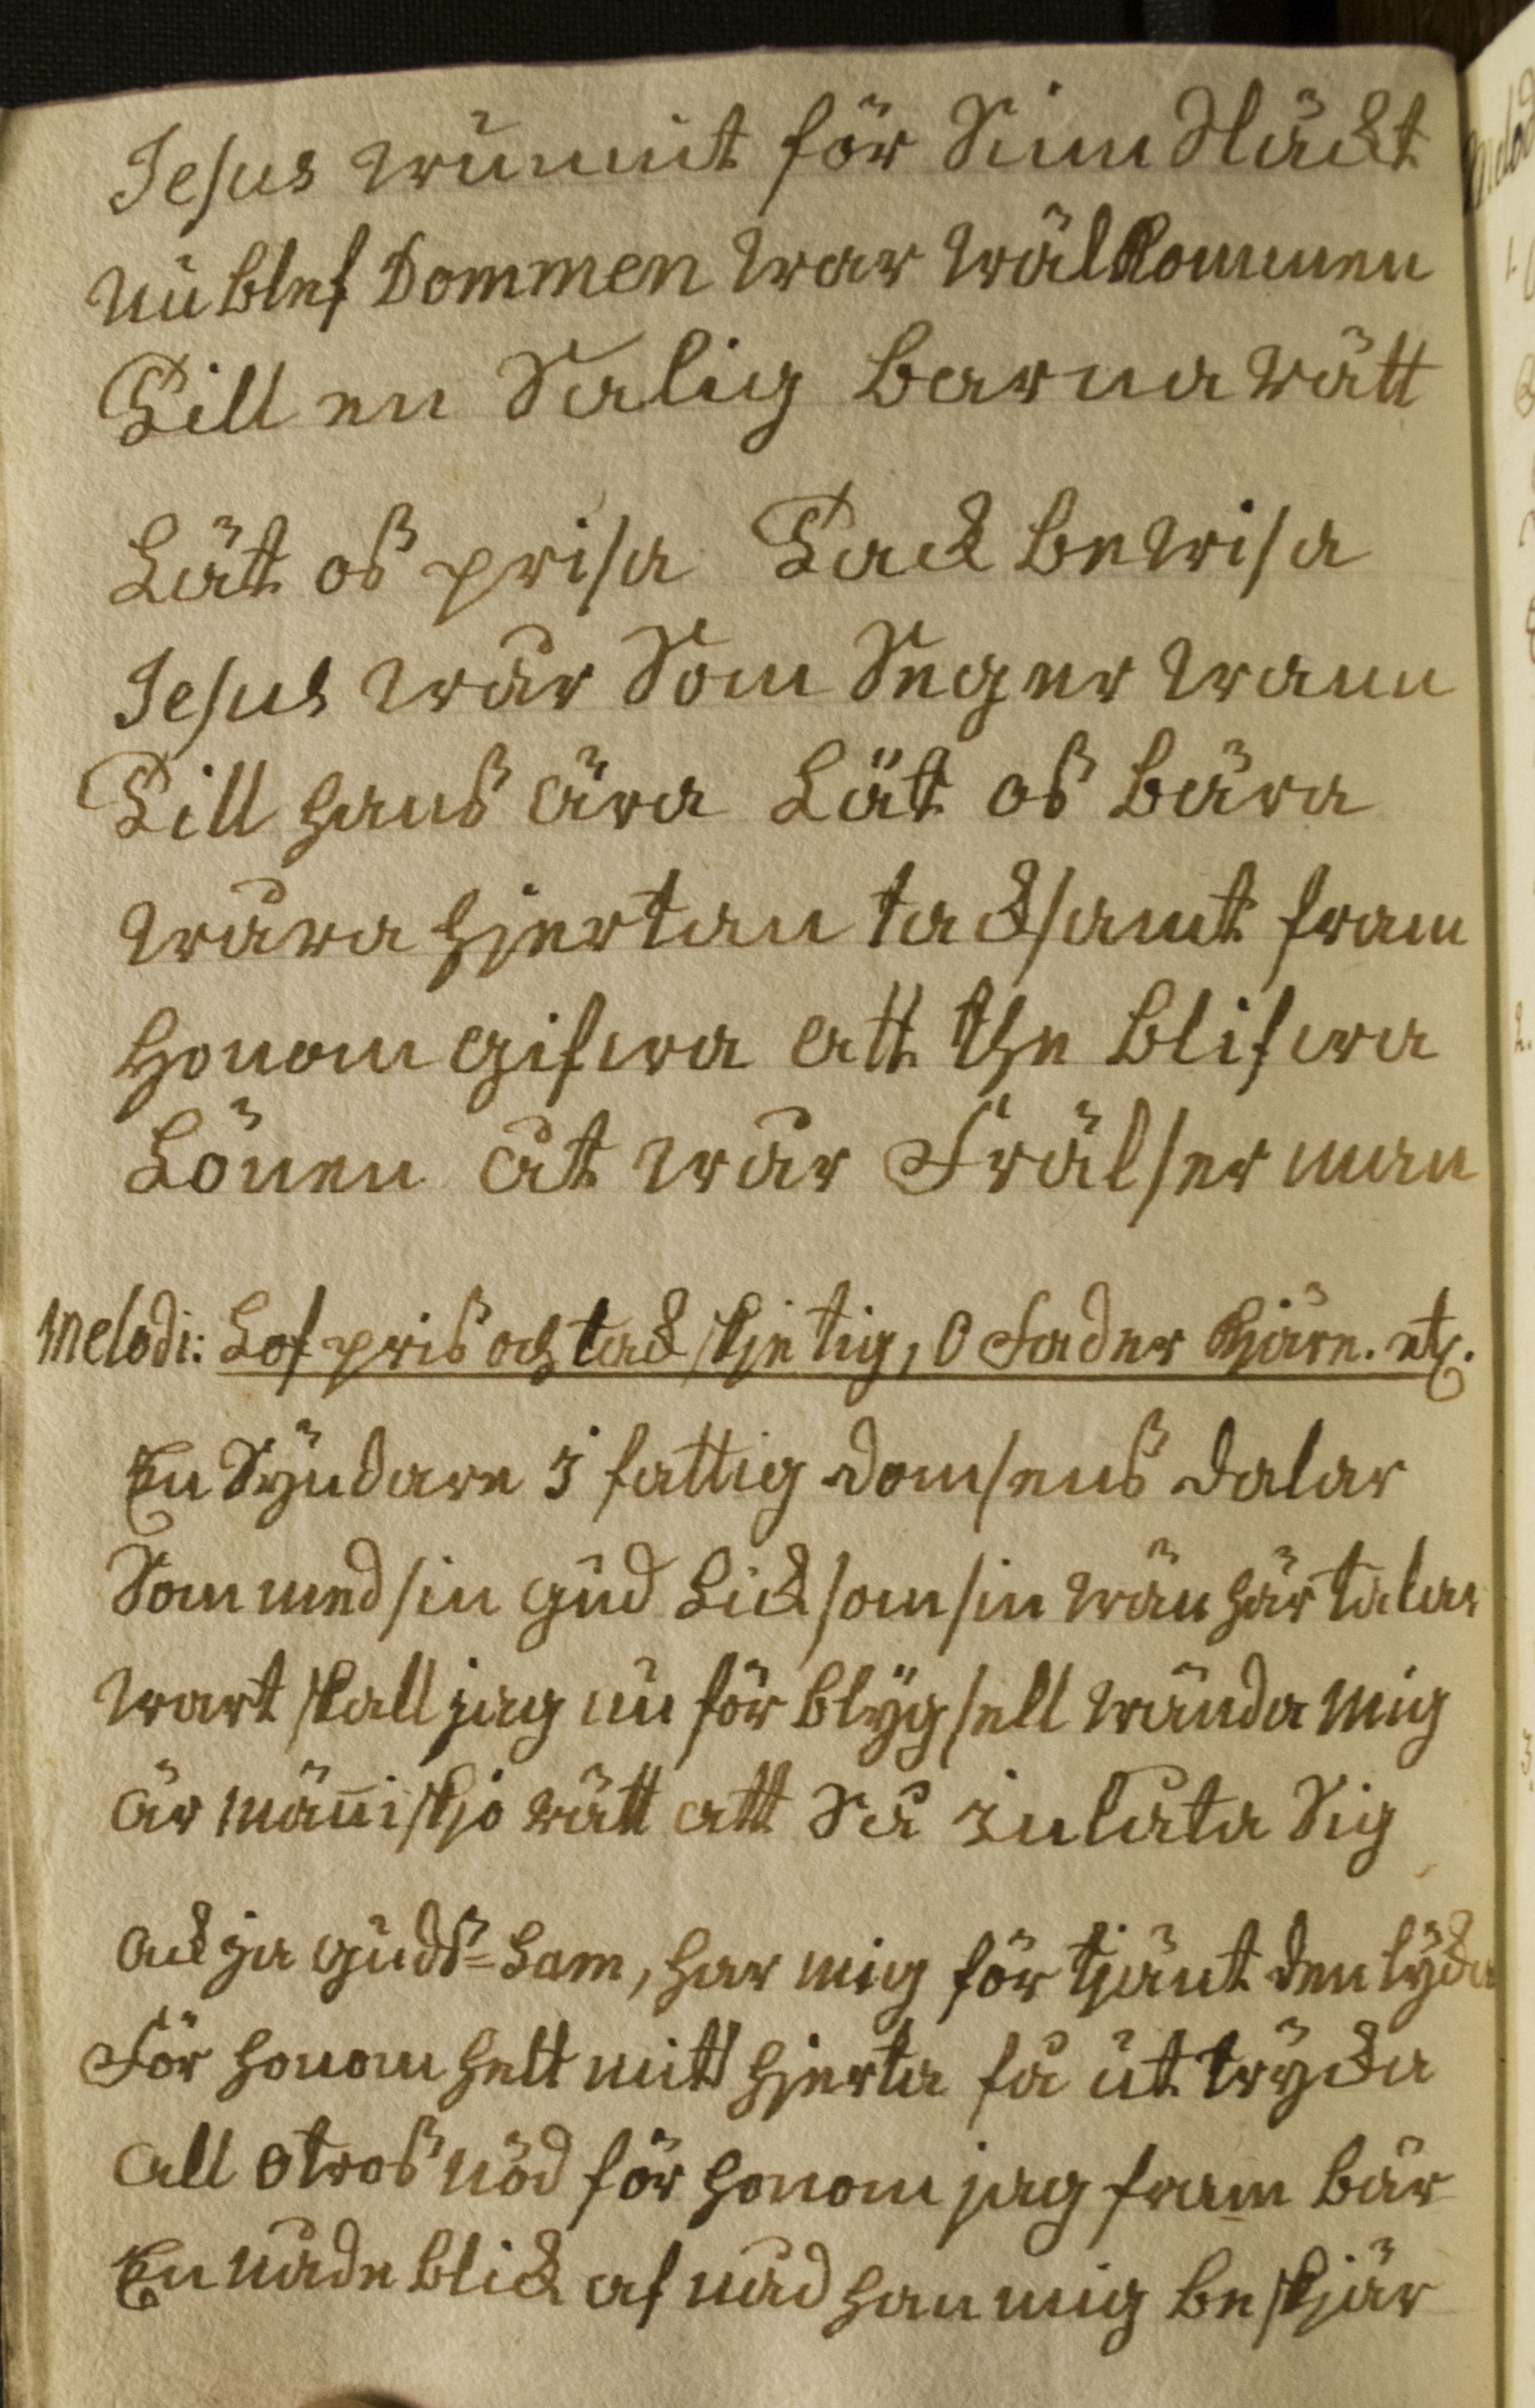 Jesus wunnit för Sinn Släckt
Nu blef Dommen war wälkommen
Till en Salig Barna rätt
Låt oß prisa Tack bewisa
Jesus wår Som Seger wann
Till hans ära Låt oß bära
wåra hjertan tacksamt fram
Honom gifwa att the blifwa
Lönen åt wår Frälserman
Melodi: Lof pris och tack skje tig, O Fader kjäre. etc.
En Syndare i fattigdomsens dalar
Som med sin Gud Lick som sin wän här talar
wart skall jag nu för blygsell wända mig
är människjo rätt att Så inlåta Sig
Ack ja Guds=Lam, har mig förtjänt den lycka
För honom helt mitt hjerta få uttrycka
All otros nöd för honom jag fram bär
En nådeblick af nåd han mig beskjär